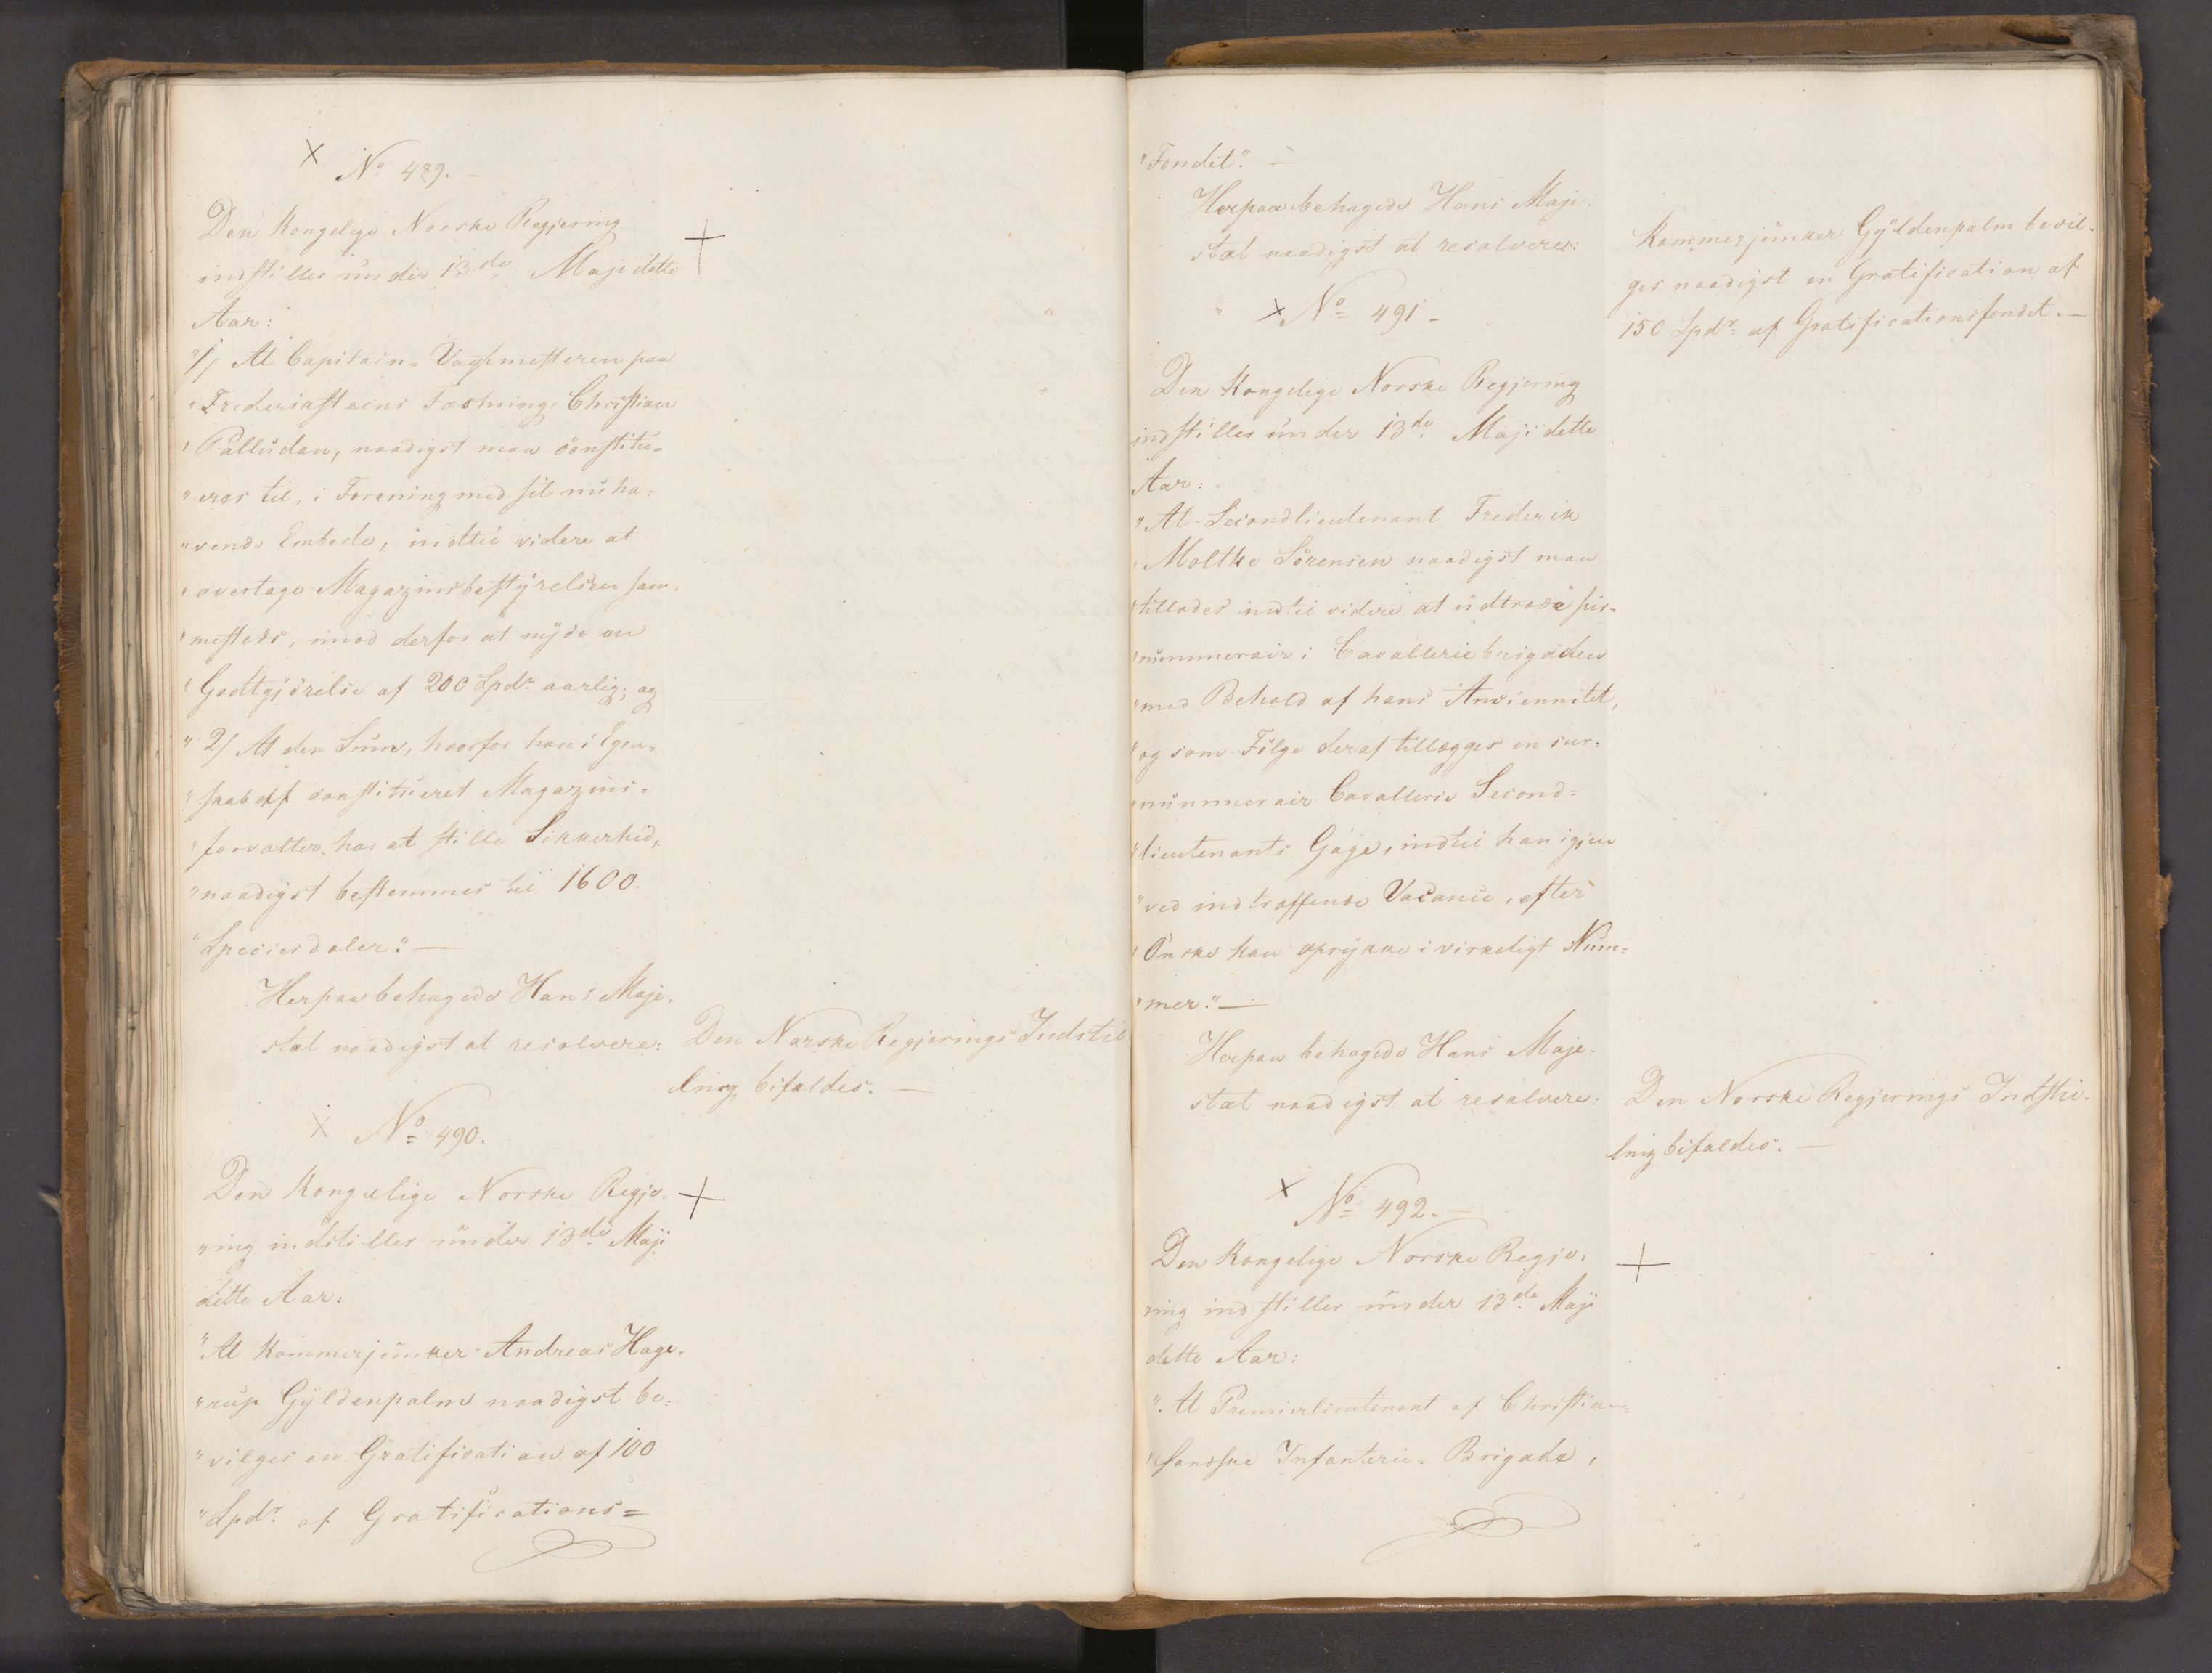 × No 489. –
Den Kongelige Norske Regjering
indstiller under 13de Maji dette
Aar:
"1/ At Capitain-Vagtmesteren paa
"Fredericksteens Fæstning Christian
"Palludan, naadigst maa constitu-
"eres til, i Forening med sit nuha-
"vende Embede, indtil videre at
"overtage Magazinsbestyrelsen sam-
"mesteds, imod derfor at nyde en
"Godtgjörelse af 200 Spdr. aarlig; og
"2/ At den Sum, hvorfor han i Egen-
"skab af constitueret Magazins-
"forvalter har at stille Sikkerhed,
"naadigst bestemmes til 1600
"Speciesdaler." —
Herpaa behagede Hans Maje-
stæt naadigst at resolvere:
Den Norske Regjerings Indstil
ling bifaldes. —
× No 490.
Den Kongelige Norske Regje-
ring indstiller under 13de Maji
dette Aar:
"At Kammerjunker Andreas Hage-
"rup Gyldenpalm naadigst be-
"vilges en Gratification af 100
"Spdr. af Gratifications=
"Fondet." –
Herpaa behagede Hans Maje-
stæt naadigst at resolvere:
Kammerjunker Gyldenpalm bevil-
ges naadigst en Gratification af
150 Spdr. af Gratificationsfondet. —
× No 491 –
Den Kongelige Norske Regjering
indstiller under 13de Maji dette
Aar:
"At Secondlieutenant Frederik
"Moltke Sörensen naadigst maa
"tillades indtil videre at udtræde sur-
"nummerair i Cavalleriebrigaden
"med Behold af hans Anciennitet,
"og som Fölge deraf tillægges en sur-
"nummerair Cavallerie Second=
"lieutenants Gage, indtil han igjen
"ved indtræffende Vacance, efter
"Önske kan oprykke i virkeligt Num=
"mer." —
Herpaa behagede Hans Maje-
stæt naadigst at resolvere:
Den Norske Regjerings Indstil-
ling bifaldes. —
× No 492. –
Den Kongelige Norske Regje-
ring indstiller under 13de Maji
dette Aar:
"At Premierlieutenant af Christian-
"sandske Infanterie-Brigade,